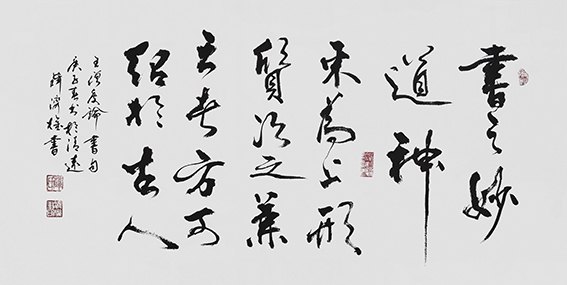 書之妙
道神
采為上形
質次之兼
之者方可
紹於古人
王僧虔論書句
庚子夏書於清遠
薛濟書